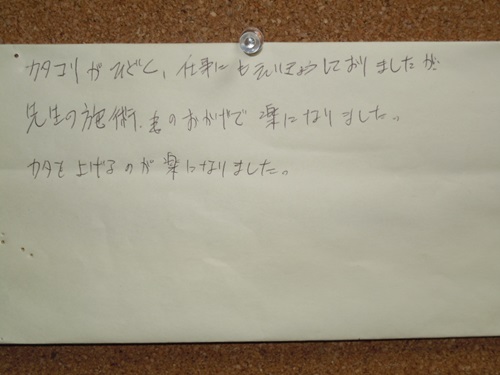 カタコリがひどく、仕事にもえいきょうしておりましたが
先生の施術、のおかげで楽になりました。
カタを上げるのが楽になりました。